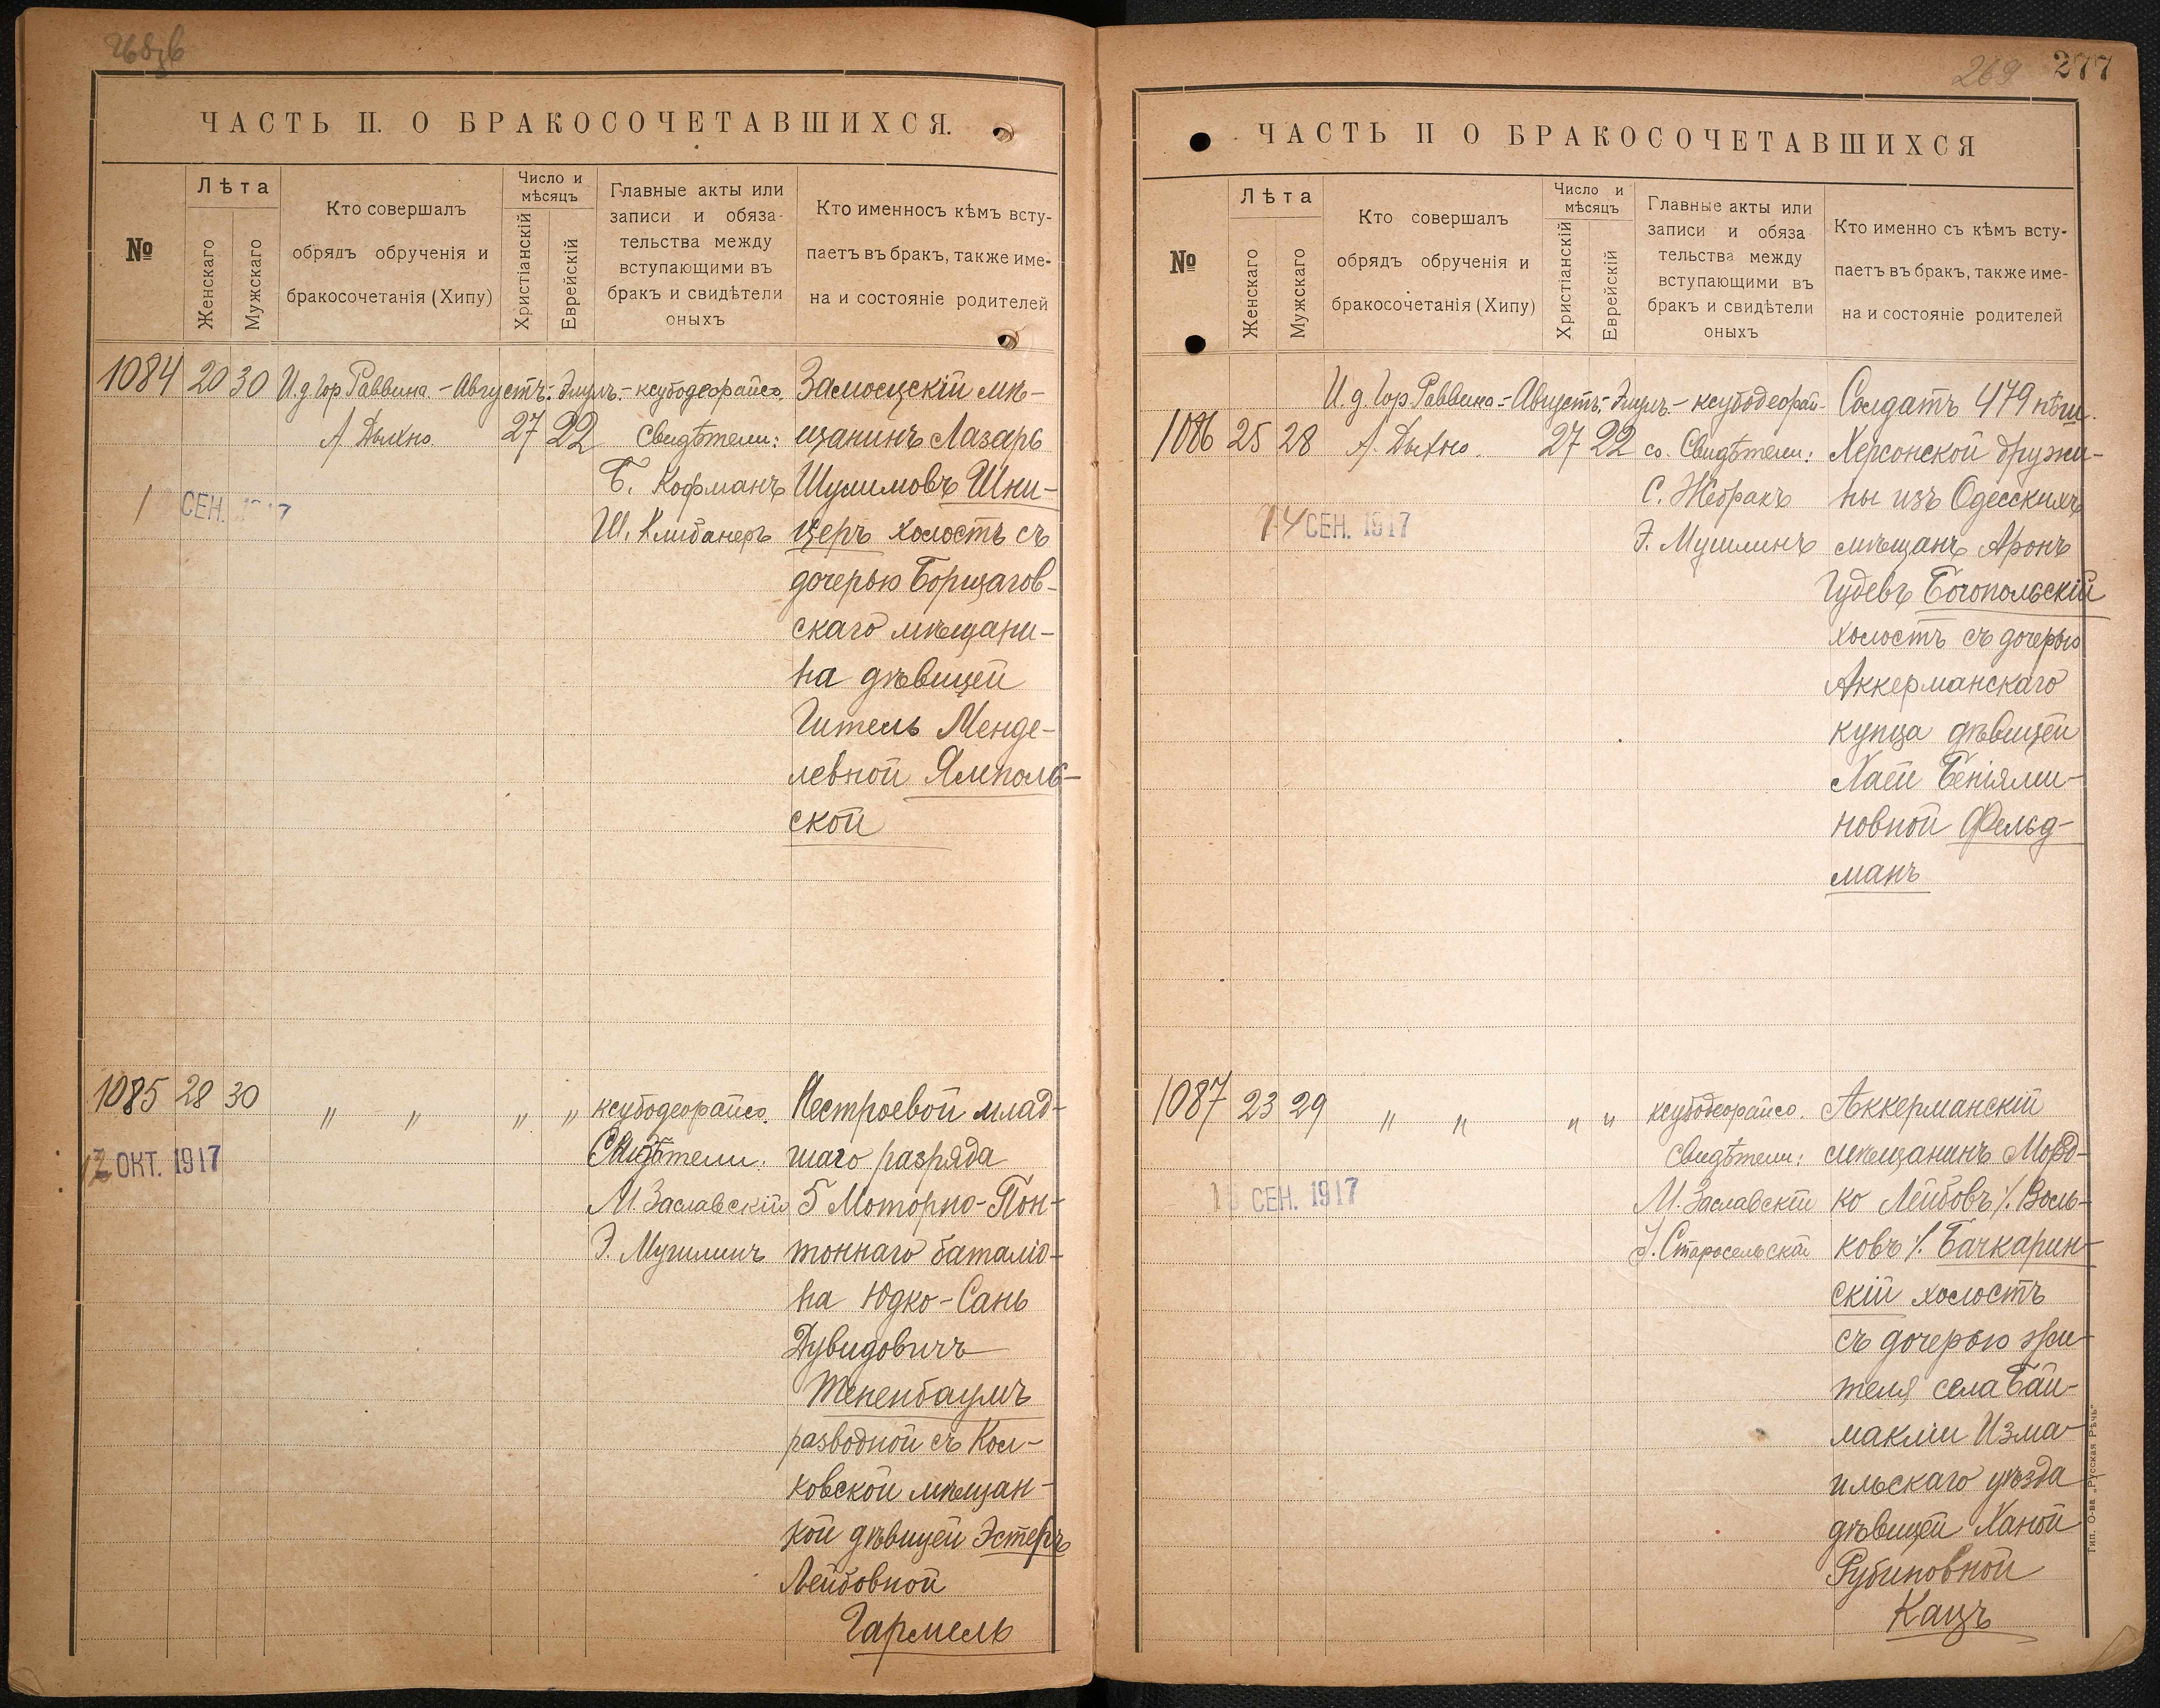 ЧАСТЬ II. О БРАКОСОЧЕТАВШИХСЯ.
№
Лѣта
Женскаго
Мужскаго
Кто совершалъ
обрядъ обрученія и
бракосочетанія (Хипу)
Число и
мѣсяцъ
Христіанскій
Еврейскій
Главные акты или
записи и обяза-
тельства между
вступающими въ
бракъ и свидѣтели
оныхъ
Кто именносъ кѣмъ всту-
паетъ въ бракъ, также име-
на и состояніе родителей
1084 20 30 И.д. Гор Раввина. - Августъ: Элулъ. - ксубодеорайсо.
А. Дыхно 27 22 Свидѣтели:
Б. Кофманъ
Ш. Клибанеръ
СЕН. 1917
Замосцскій мѣ-
щанинъ Лазарь
Шулимовъ Шни-
церъ холостъ съ
дочерью Борщагов-
скаго мѣщани-
на дѣвицей
Гитель Менде-
левной Ямполь-
ской
1085 28 30 " " " " ксубодеорайсо.
Свидѣтели:
М. Заславскій
Э. Мушлинъ
12 ОКТ. 1917
Нестроевой млад-
шаго разряда
5 Моторно-Пон-
тоннаго баталіо-
на Юдко-Сань
Дувидовичъ
Тененбаумъ
разводной съ Кол-
ковской мѣщан-
кой дѣвицей Эстеръ
Лейбовной
Гармель
269 277
ЧАСТЬ II О БРАКОСОЧЕТАВШИХСЯ
№
Лѣта
Женскаго
Мужскаго
Кто совершалъ
обрядъ обрученія и
бракосочетанія (Хипу)
Число и
мѣсяцъ
Христіанскій
Еврейскій
Главные акты или
записи и обяза
тельства между
вступающими въ
бракъ и свидѣтели
оныхъ
Кто именно съ кѣмъ всту-
паетъ въ бракъ, также име-
на и состояніе родителей
И. д. Гор Раввина - Августъ: Элулъ. - ксубодеорай-
1086 25 28 А. Дыхно. 27 22 со. Свидѣтели:
С. Жебракъ
Э. Мушлинъ
14 СЕН. 1917
Солдатъ 479 пѣш.
Херсонской дружи-
ны изъ Одесскихъ
мѣщанъ Аронъ
Гудевъ Богопольскій
холостъ съ дочерью
Аккерманскаго
купца дѣвицей
Хаей Беніями-
новной Фельд-
манъ
1087 23 29 " " " " ксубодеорайсо.
Свидѣтели:
М. Заславскій
Старосельскій
СЕН. 1917
Аккерманскій
мѣщанинъ Морд-
ко Лейбовъ ٪ Воль-
ковъ ٪ Бачкарин-
скій холостъ
съ дочерью жи-
теля села Бай-
макліи Изма-
ильскаго уѣзда
дѣвицей Ханой
Рубиновной
Кацъ
Тип. О-ва „Русская Рѣчь"